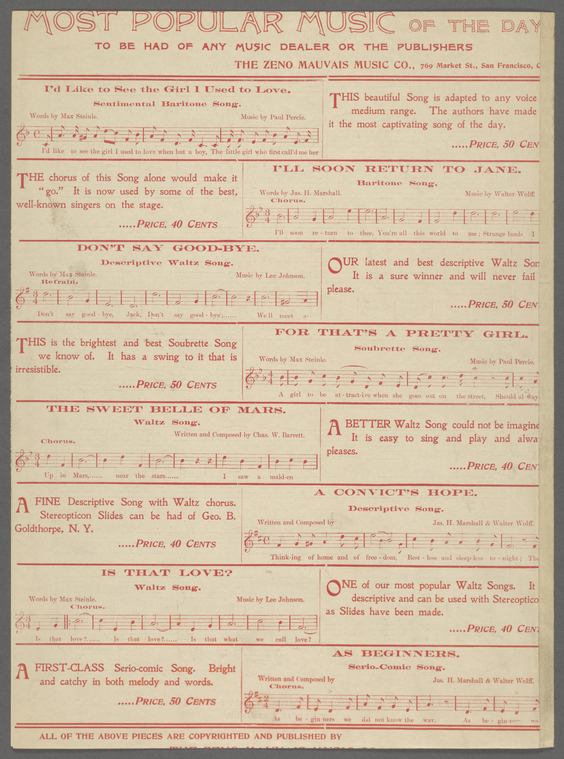 MOST POPULAR MUSIC OF THE DAY
TO BE HAD OF ANY MUSIC DEALER OR THE PUBLISHERS
THE ZENO MAUVAIS MUSIC CO., 769 Market St., San Francisco, C
I'd Like to See the Girl I Used to Love.
Sentimental Baritone Song.
Words by Max Steinle. Music by Paul Percie.
I'd like to see the girl I used to love when but a boy, The little girl who first call'd me her
THIS beautiful Song is adapted to any voice
medium range. The authors have made
it the most captivating song of the day.
.....PRICE, 50 CEN
THE chorus of this Song alone would make it
"go." It is now used by some of the best,
well-known singers on the stage.
.....PRICE, 40 CENTS
I'LL SOON RETURN TO JANE.
Baritone Song.
Words by Jas. H. Marshall. Music by Walter Wolff.
Chorus.
I'll soon re - turn to thee, You're all this world to me; Strange lands I
DON'T SAY GOOD-BYE.
Descriptive Waltz Song.
Words by Max Steinle. Music by Lee Johnson.
Refrain.
Don't say good - bye, Jack, Don't say good - bye;...... We'll meet a-
OUR latest and best descriptive Waltz Son
It is a sure winner and will never fail
please.
.....PRICE, 50 CEN
THIS is the brightest and best Soubrette Song
we know of. It has a swing to it that is
irresistible.
.....PRICE, 50 CENTS
FOR THAT'S A PRETTY GIRL.
Soubrette Song.
Words by Max Steinle. Music by Paul Percie.
A girl to be at-tract-ive when she goes out on the street, Should al way
THE SWEET BELLE OF MARS.
Waltz Song.
Written and Composed by Chas. W. Barrett.
Chorus.
Up in Mars,...... near the stars...... I saw a maid-en
A BETTER Waltz Song could not be imagine
It is easy to sing and play and alwa
pleases.
.....PRICE, 40 CEN
A FINE Descriptive Song with Waltz chorus.
Stereopticon Slides can be had of Geo. B.
Goldthorpe, N. Y.
.....PRICE, 40 CENTS
A CONVICT'S HOPE.
Descriptive Song.
Written and Composed by Jas. H. Marshall & Walter Wolff.
Think-ing of home and of free - dom, Rest - less and sleep-less to - night; Tho
IS THAT LOVE?
Waltz Song.
Words by Max Steinle. Music by Lee Johnson.
Chorus.
Is that love?...... Is that love?...... Is that what we call love?
ONE of our most popular Waltz Songs. It
descriptive and can be used with Stereoptico
as Slides have been made.
.....PRICE, 40 CEN
A FIRST-CLASS Serio-comic Song. Bright
and catchy in both melody and words.
.....PRICE, 50 CENTS
AS BEGINNERS.
Serio-Comic Song.
Written and Composed by Jas. H. Marshall & Walter Wolff.
Chorus.
As be - gin ners we did not know the way, As be - gin
ALL OF THE ABOVE PIECES ARE COPYRIGHTED AND PUBLISHED BY